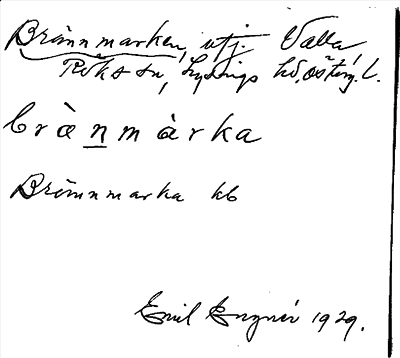 Brännmarken, utj. Valla
Röks sn, Lysings hd, Östergl.
brànmàrka
Brännmarka kb
Emil 1929.